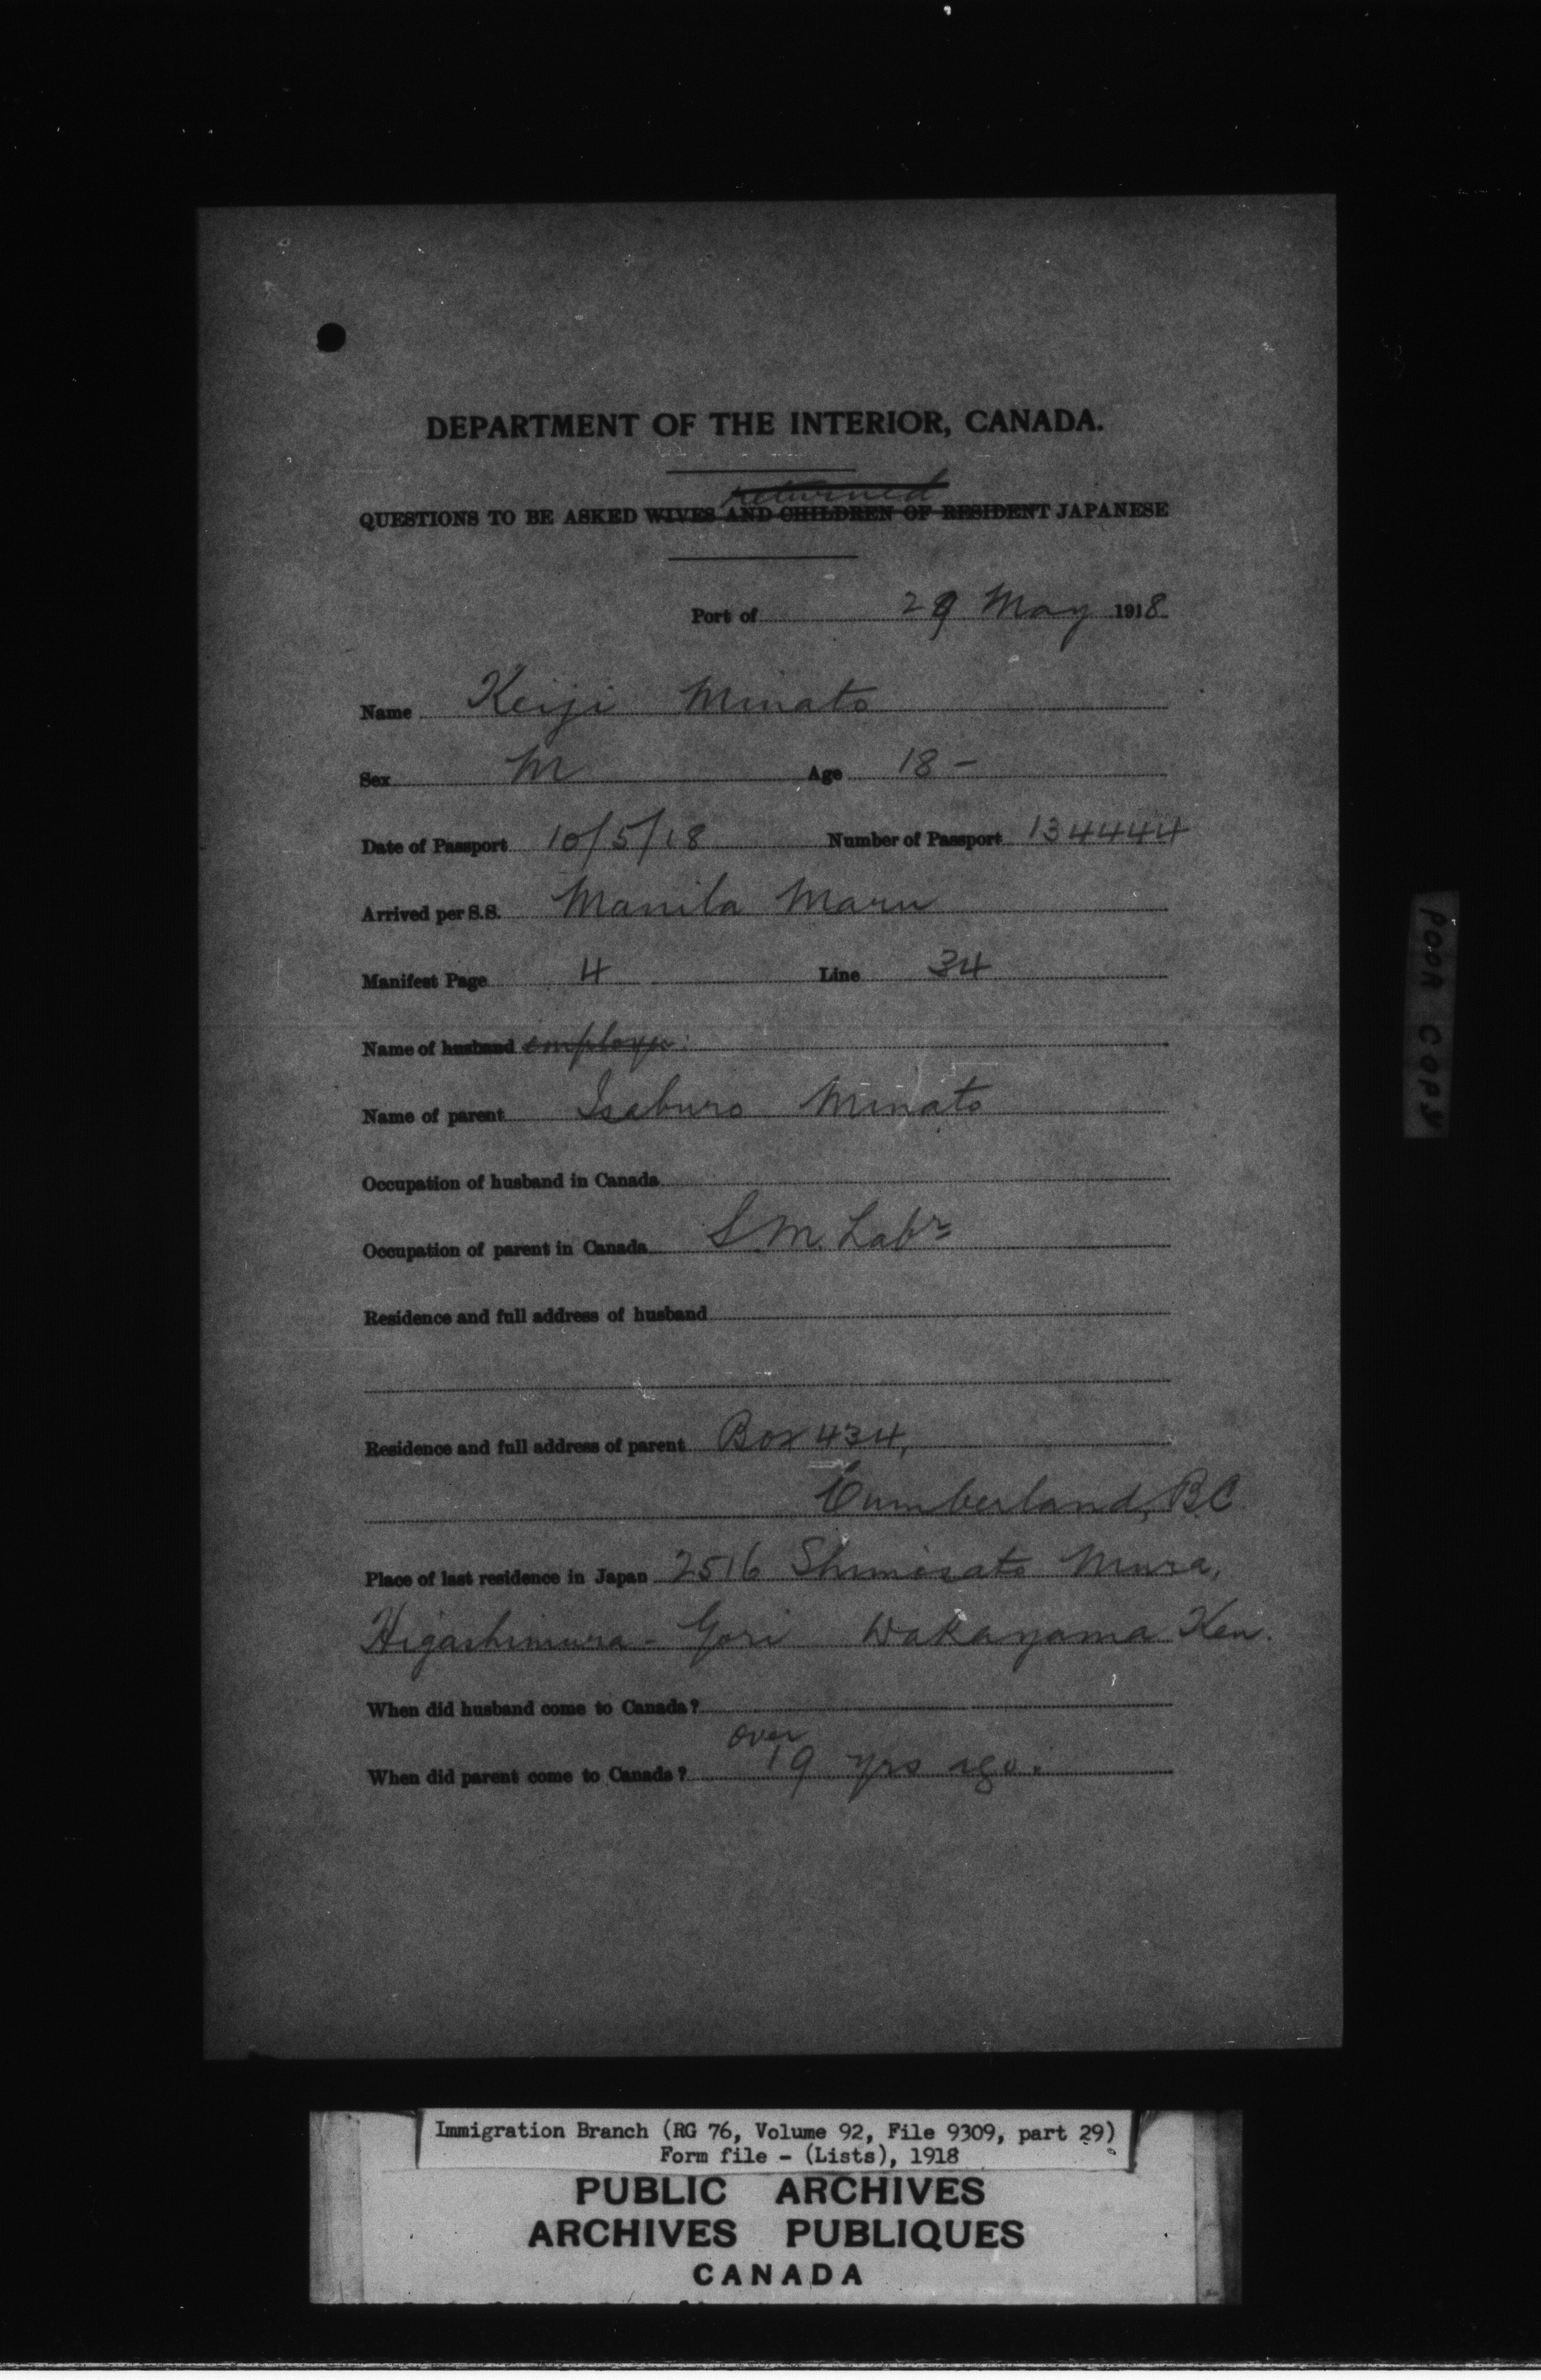 DEPARTMENT OF THE INTERIOR, CANADA.
returned
QUESTIONS TO BE ASKED WIVES AND CHILDREN OF RESIDENT JAPANESE
Port of 29 May 1918
Name Keiji Minato
Sex M Age 18 -
Date of Passport 10/5/18 Number of Passport 134444
Arrived per S.S. Manila Maru
Manifest Page 4 Line 34
Name of husband employer
Name of parent Isaburo Minato
Occupation of husband in Canada
Occupation of parent in Canada S.M. Labr
Residence and full address of husband
Residence and full address of parent Box 434,
Cumberland, B.C
Place of last residence in Japan 2516 Shimosato Mura,
Higashimura - Gori Wakayama Ken.
When did husband come to Canada?
over
When did parent come to Canada? 19 yrs ago.
POOR COPY
Immigration Branch (RG 76, Volume 92, File 9309, part 29)
Form file - (Lists), 1918
PUBLIC ARCHIVES
ARCHIVES PUBLIQUES
CANADA